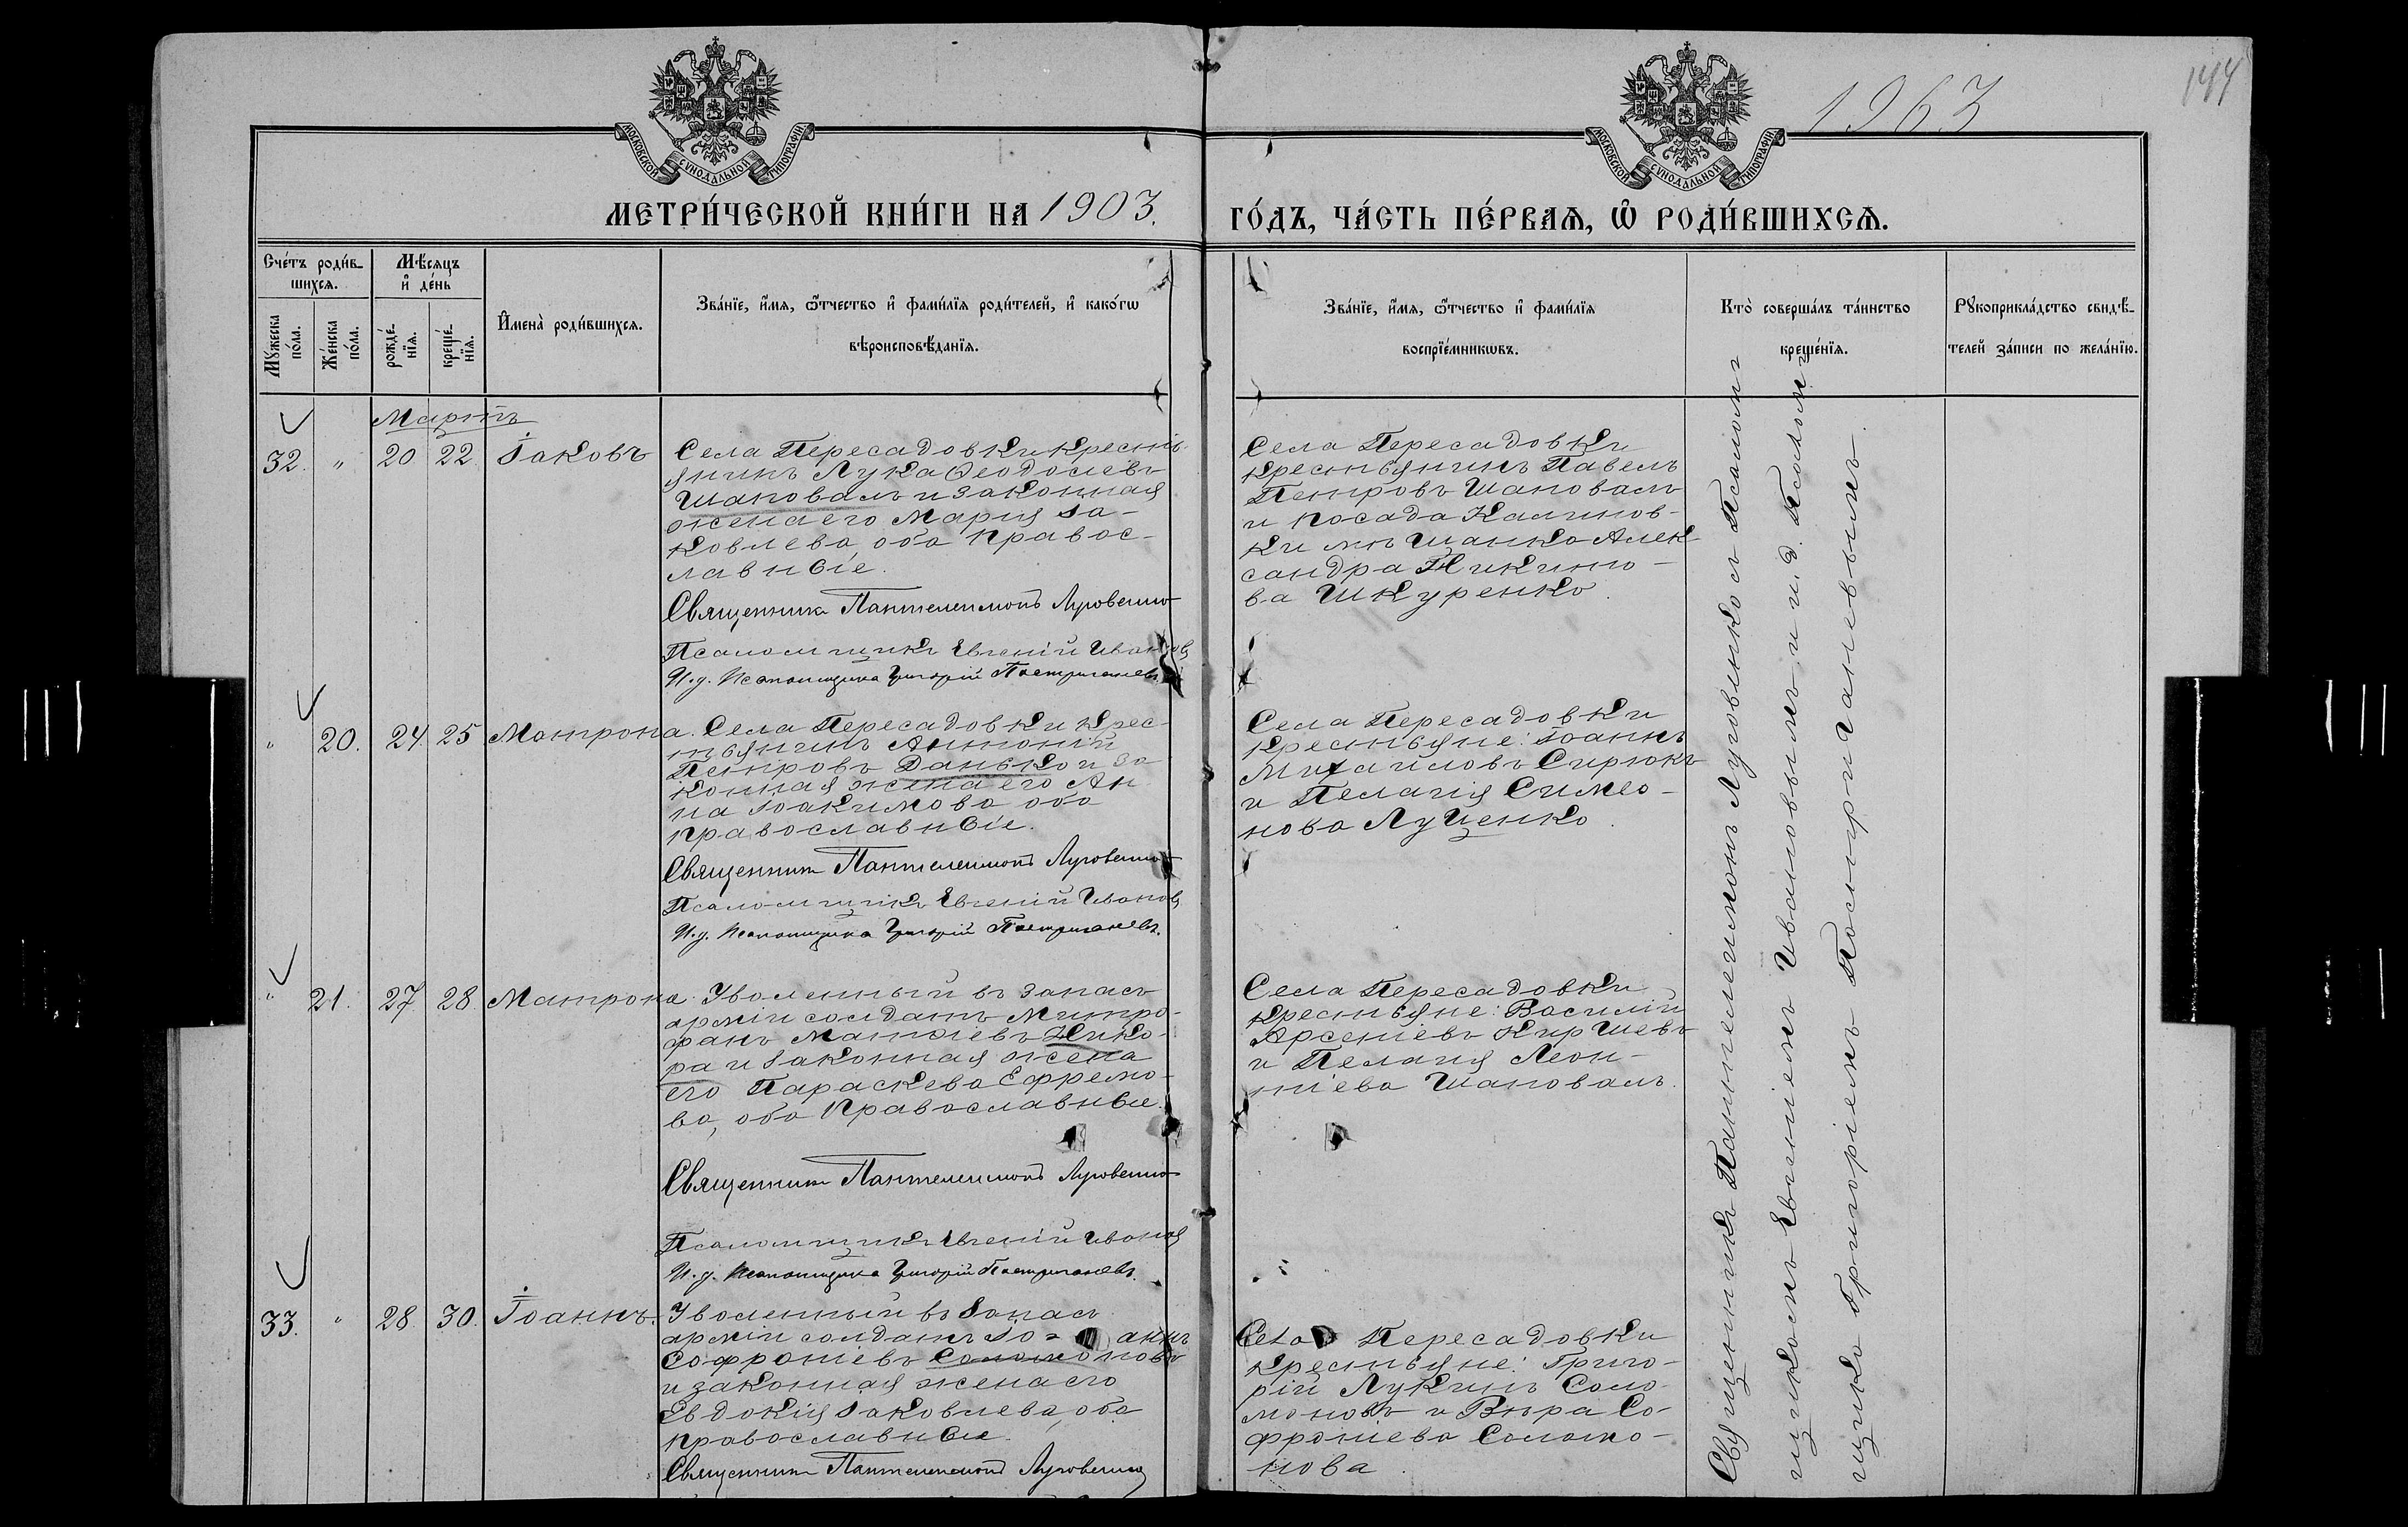 1963
144
МОСКОВСКОЙ СУНОДАЛЬНОЙ ТИПОГРАФІИ
МОСКОВСКОЙ СУНОДАЛЬНОЙ ТИПОГРАФІИ
МЕТРИ́ЧЕСКОЙ КНИ́ГИ НА 1903.
ГО́ДЪ, ЧА́СТЬ ПЕ́РВАѦ, Ѡ҆ РОДИ́ВШИХСѦ.
Сче́тъ роди́в-
шихсѧ.
Мꙋ́жеска
по́ла.
Же́нска
по́ла.
Мѣ́сѧцъ
и҆ де́нь
рожде́-
нїѧ.
креще́-
нїѧ.
И҆мена̀ роди́вшихсѧ.
Зва́нїе, и҆́мѧ, ѻ҆́тчество и҆ фами́лїѧ роди́телей, и҆ како́гѡ
вѣроисповѣ́данїѧ.
Зва́нїе, и҆́мѧ, ѻ҆́тчество и҆ фами́лїѧ
воспрїе́мникѡвъ.
Кто̀ соверша́лъ та́инство
креще́нїѧ.
Рꙋкоприкла́дство свидѣ́-
телей за́писи по жела́нїю.
Мартъ
32. " 20 22 Іаковъ
Села Пересадовки кресть-
янинъ Лука Ѳеодосіевъ
Шаповалъ и законная
жена его Марія Іа-
ковлева, оба правос-
лавные.
Священникъ Пантелеимонъ Луговенко
Псаломщикъ Евгеній Ивановъ
И.д. Псаломщика Григорій Постригачевъ
Села Пересадовки
крестьянинъ Павелъ
Петровъ Шаповалъ
и посада Калинов-
ки мѣщанка Алек-
сандра Никито-
ва Шкуренко.
" 20. 24. 25 Матрона.
Села Пересадовки крес-
тьянинъ Антоній
Петровъ Данько и за
конная жена его Ан
на Іоакимова оба
православные.
Священникъ Пантелеимонъ Луговенко
Псаломщикъ Евгеній Ивановъ
И.д. Псаломщика Григорій Постригачевъ.
Села Пересадовки
крестьяне: Іоаннъ
Михайловъ Сирюкъ
и Пелагія Симео-
нова Луценко.
" 21. 27. 28. Матрона
Уволенный въ запасъ
арміи солдатъ Митро-
фанъ Матѳіевъ Цико-
ра и законная жена
его Параскева Ефремо-
ва, оба православные.
Священникъ Пантелеимонъ Луговенко
Псаломщикъ Евгеній Ивановъ
И.д. Псаломщика Григорій Постригачевъ.
Села Пересадовки
крестьяне: Василій
Арсеніевъ Киршевъ
и Пелагія Леон-
тіева Шаповалъ.
33. " 28. 30. Іоаннъ.
Уволенный въ запасъ
арміи солдатъ Іо= аннъ
Софроніевъ Соломоновъ
и законная жена его
Евдокія Іаковлева, оба
православные.
Священникъ Пантелеимонъ Луговенко
Села Пересадовки
крестьяне: Григо-
рій Лукинъ Соло-
моновъ и Вѣра Со-
фроніева Соломо-
нова.
Священникъ Пантелеимонъ Луговенко съ Псалом-
щикомъ Евгеніемъ Ивановымъ и и.д. Псалом-
щика Григоріемъ Постригачевымъ.